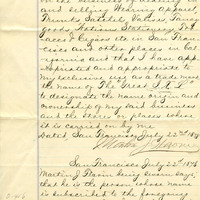 and selling Wearing Apparel,
Trunks, Satchels, Valises, Fancy
Goods, Notions, Stationery, Tob
accos & Cigars etc in San Fran
cisco and other places in Cal
ifornia and that I have app
ropriated and appropriate to
my exclusive use as a trade mark
the name of The Great I.X.L. to
to designate the name origin and
ownership of my said business
and the stores or places where
it is carried on by me
Dated, San Francisco July 22nd 187
San Francisco July 22nd 1875
Martin J. being sworn says
that he is the person whose name
is subscribed to the foregoing